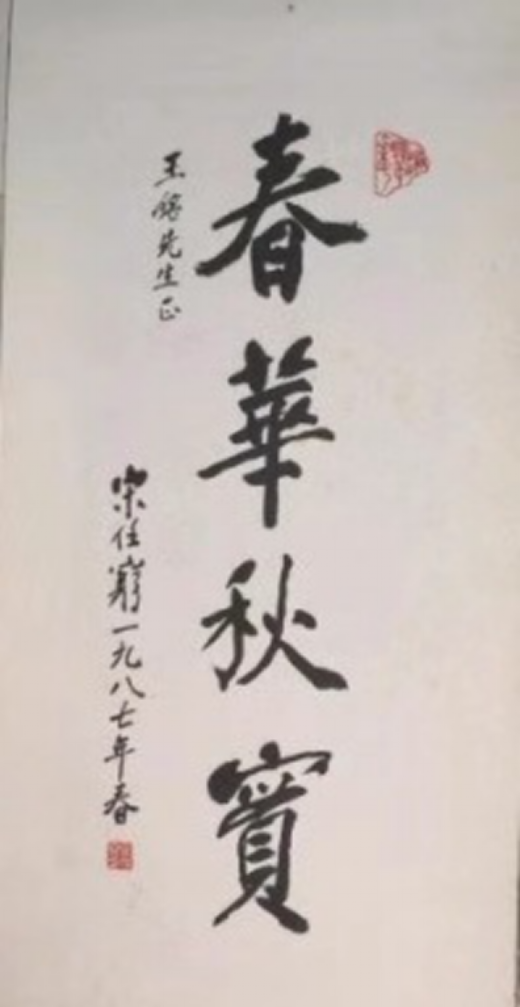 春華秋實
王銘先生正
宋任窮一九八七年春